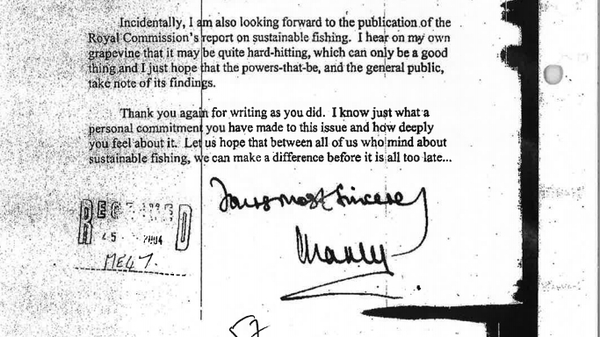 Incidentally, I am also looking forward to the publication of the
Royal Commission's report on sustainable fishing. I hear on my own
grapevine that it may be quite hard-hitting, which can only be a good
thing and I just hope that the powers-that-be, and the general public,
take note of its findings.
Thank you again for writing as you did. I know just what a
personal commitment you have made to this issue and how deeply
you feel about it. Let us hope that between all of us who mind about
sustainable fishing, we can make a difference before it is all too late...
Yours most sincerely
2004